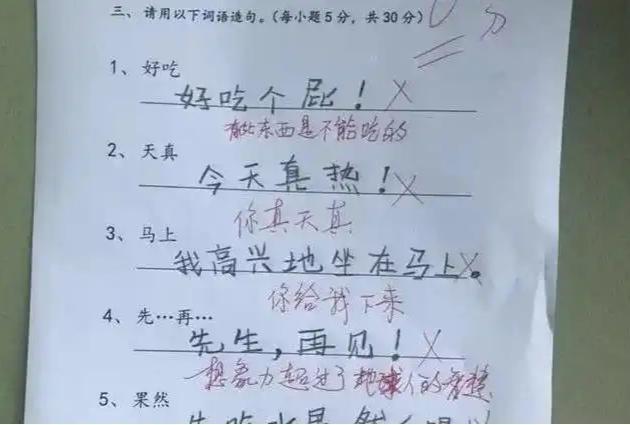 三、请用以下词语造句。(每小题5分,共30分)
0分
1、好吃
好吃个屁!
有些东西是不能吃的
2、天真
今天真热!
你真天真
3、马上
我高兴地坐在马上。
你给我下来
4、先…再…
先生,再见!
想象力超过了地球人的智慧
5、果然
先吃水果,然